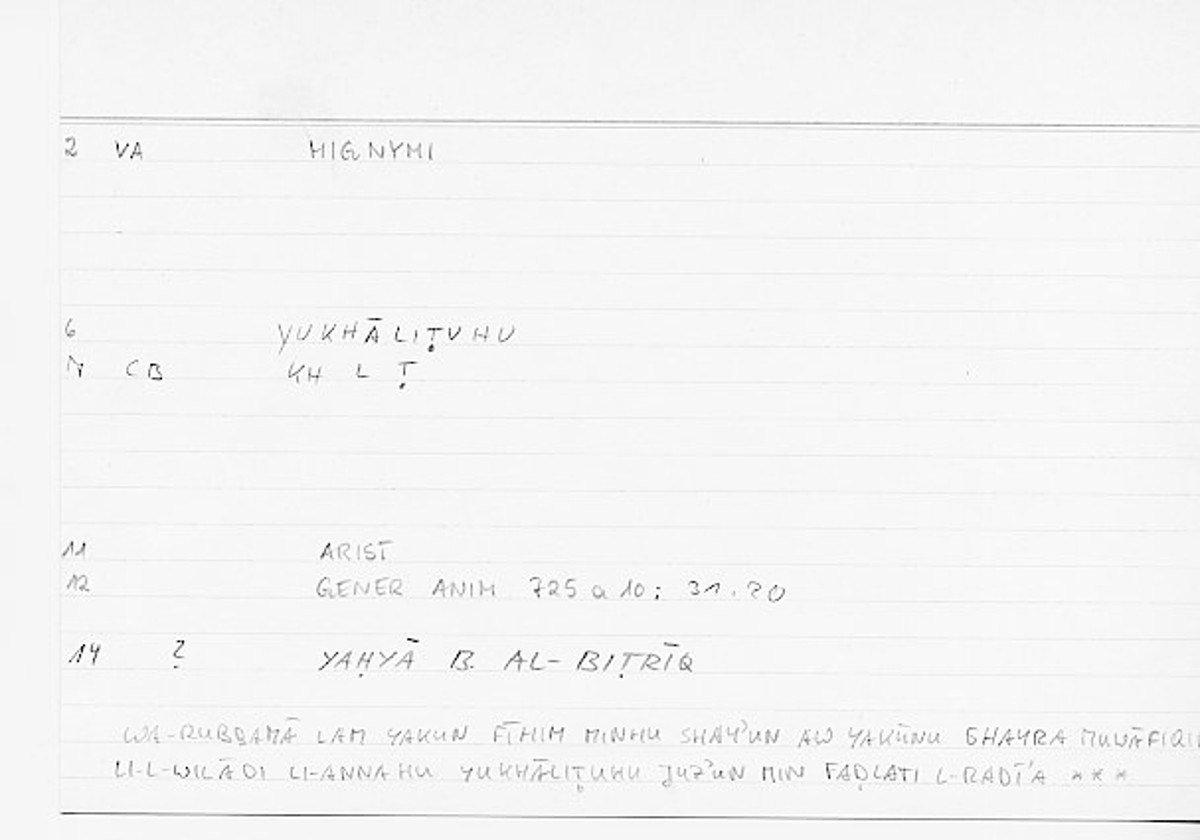 2 VA MIGNYMI
6 YUKHĀLIṬUHU
N CB KH L Ṭ
11 ARIST
12 GENER ANIM 725 a 10; 31.20
14 ? YAḤYĀ B. AL-BIṬRĪQ
WA-RUBBAMĀ LAM YAKUN FĪHIM MINHU SHAY'UN AW YAKŪNU GHAYRA MUWĀFIQI
LI-L-WILĀDI LI-ANNAHU YUKHĀLIṬUHU JUZ'UN MIN FAḌLATI L-RADĪ'A * * *